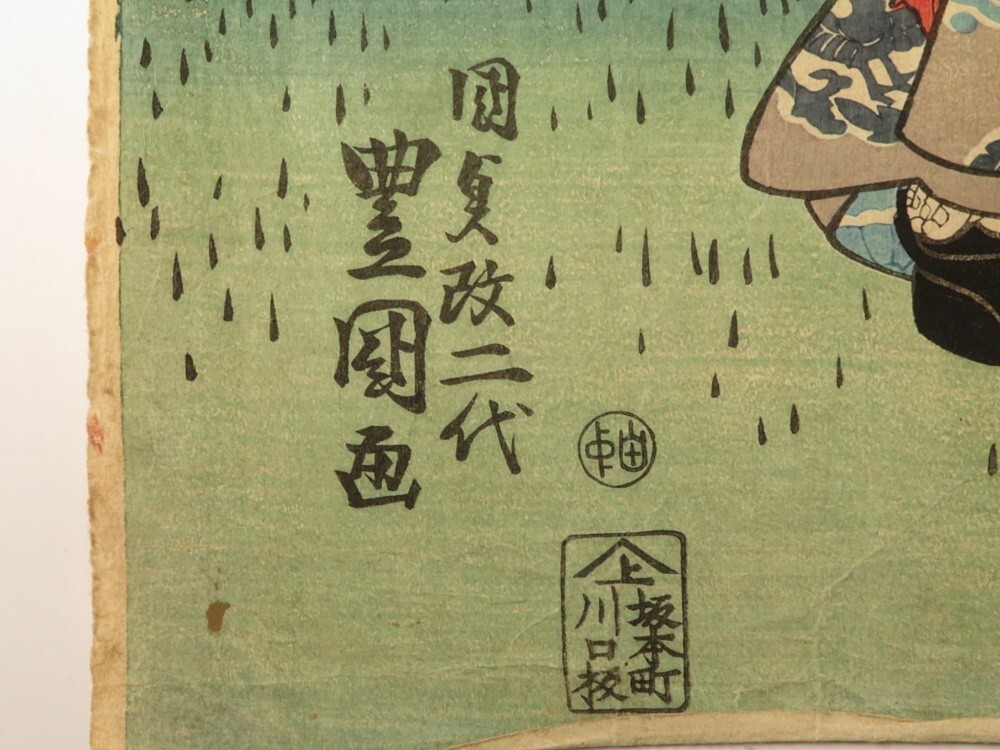 國貞改二代
豊國画
上
坂本町
川口板